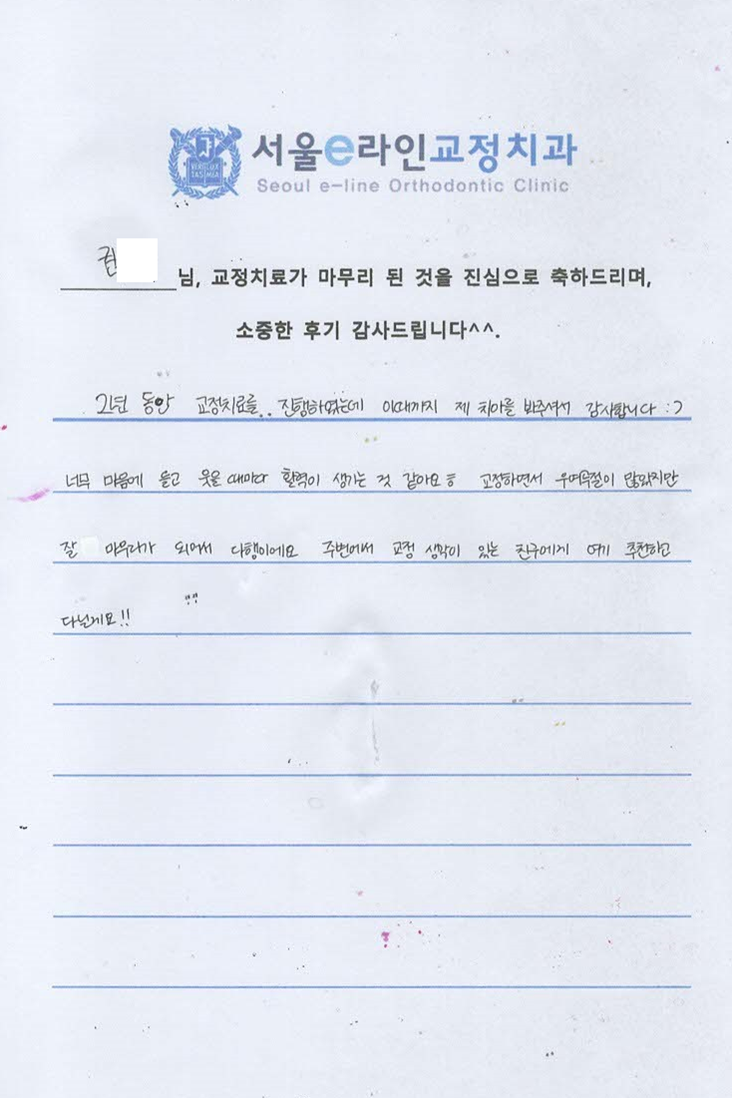 서울e라인교정치과
Seoul e-line Orthodontic Clinic
VERI LUX
TAS MEA
님, 교정치료가 마무리 된 것을 진심으로 축하드리며,
소중한 후기 감사드립니다^^.
2년 동안 교정치료를.. 진행하였는데 이때까지 제 치아를 봐주셔서 감사합니다 :)
너무 마음에 들고 웃을 때마다 활력이 생기는 것 같아요ㅎ 교정하면서 우여곡절이 많았지만
잘 마무리가 되어서 다행이에요 주변에서 교정 생각이 있는 친구에게 여기 추천하고
다닐게요!!